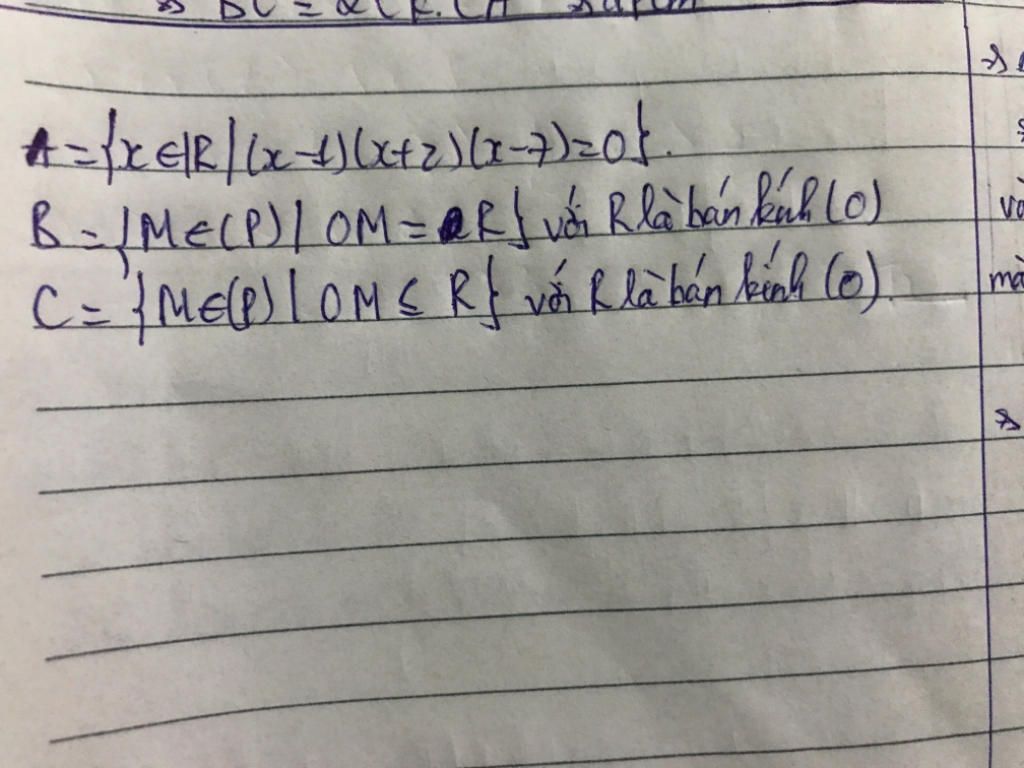 A = {x ∈ ℝ | (x-1)(x+2)(x-7)=0}.
B = {M ∈ (P) | OM = R} với R là bán kính (O)
C = {M ∈ (P) | OM ≤ R} với R là bán kính (O).